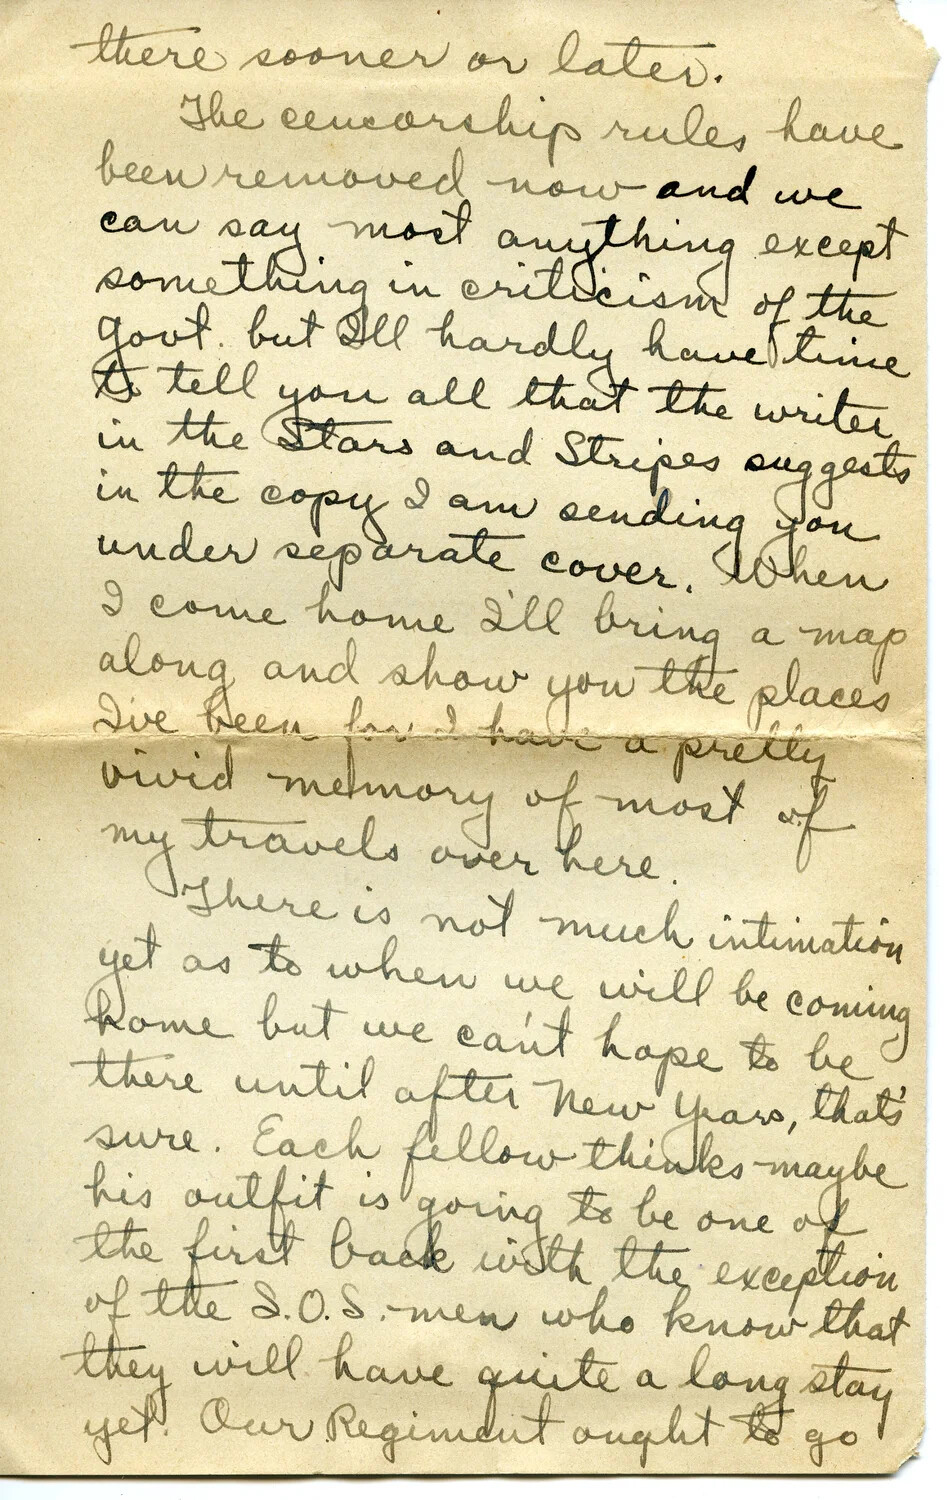 there sooner or later.
The cencorship rules have
been removed now and we
can say most anything except
something in criticism of the
govt. but I'll hardly have time
to tell you all that the writer
in the Stars and Stripes suggests
in the copy I am sending you
under separate cover. When
I come home I'll bring a map
along and show you the places
I've been for I have a pretty
vivid memory of most of
my travels over here.
There is not much intimation
yet as to when we will be coming
home but we can't hope to be
there until after New Years, that's
sure. Each fellow thinks maybe
his outfit is going to be one of
the first back with the exception
of the S.O.S. men who know that
they will have quite a long stay
yet. Our Regiment ought to go